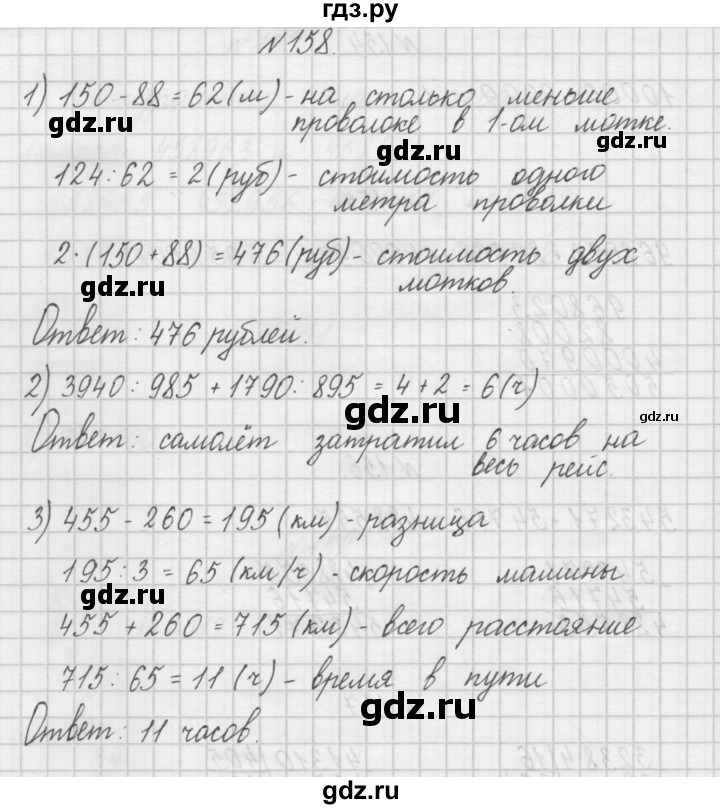 гдз.ру
№158.
1) 150-88=62(м)-на столько меньше
gdz.ru
проволоке в 1-ом мотке.
gdz.ru
124:62=2(руб)-стоимость одного
метра проволки
2·(150+88)=476(руб)-стоимость двух
gdz.ru
мотков.
Ответ: 476 рублей.
2) 3940:985+1790:895=4+2=6(ч)
gdz.ru
gdz.ru
Ответ: самолёт затратил 6 часов на
весь рейс.
3) 455-260=195(км)-разница
195:3=65(км/ч)-скорость машины
gdz.ru
455+260=715(км)-всего расстояние
715:65=11(ч)-время в пути
gdz.ru
Ответ: 11 часов.